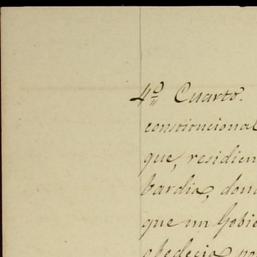 4º Cuarto.
constitucional
que, residien
bardia, don
que un Gobie
obedecia, po